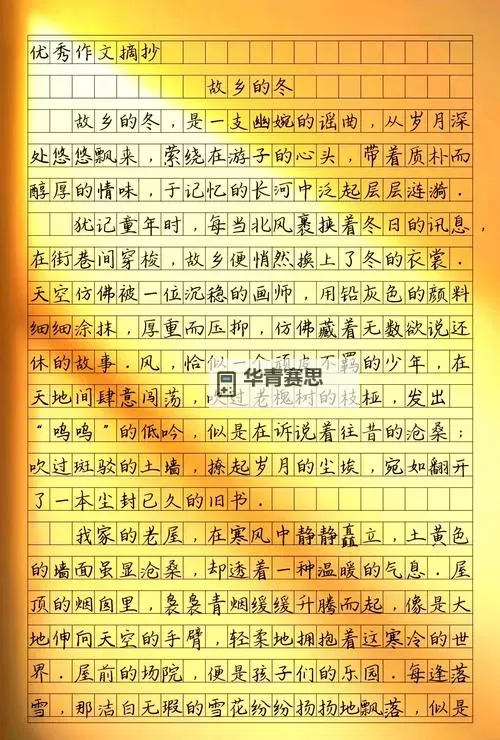 优秀作文摘抄
故乡的冬
故乡的冬，是一支幽婉的谣曲，从岁月深
处悠悠飘来，萦绕在游子的心头，带着质朴而
醇厚的情味，于记忆的长河中泛起层层涟漪．
犹记童年时，每当北风裹挟着冬日的讯息，
在街巷间穿梭，故乡便悄然换上了冬的衣裳．
天空仿佛被一位沉稳的画师，用铅灰色的颜料
细细涂抹，厚重而压抑，仿佛藏着无数欲说还
休的故事．风，恰似一个顽皮不羁的少年，在
华青赛思
天地间肆意闯荡，吹过老槐树的枝桠，发出
“呜呜”的低吟，似是在诉说着往昔的沧桑；
吹过斑驳的土墙，撩起岁月的尘埃，宛如翻开
了一本尘封已久的旧书．
我家的老屋，在寒风中静静矗立，土黄色
的墙面虽显沧桑，却透着一种温暖的气息．屋
顶的烟囱里，袅袅青烟缓缓升腾而起，像是大
地伸向天空的手臂，轻柔地拥抱着这寒冷的世
界．屋前的场院，便是孩子们的乐园．每逢落
雪，那洁白无瑕的雪花纷纷扬扬地飘落，似是